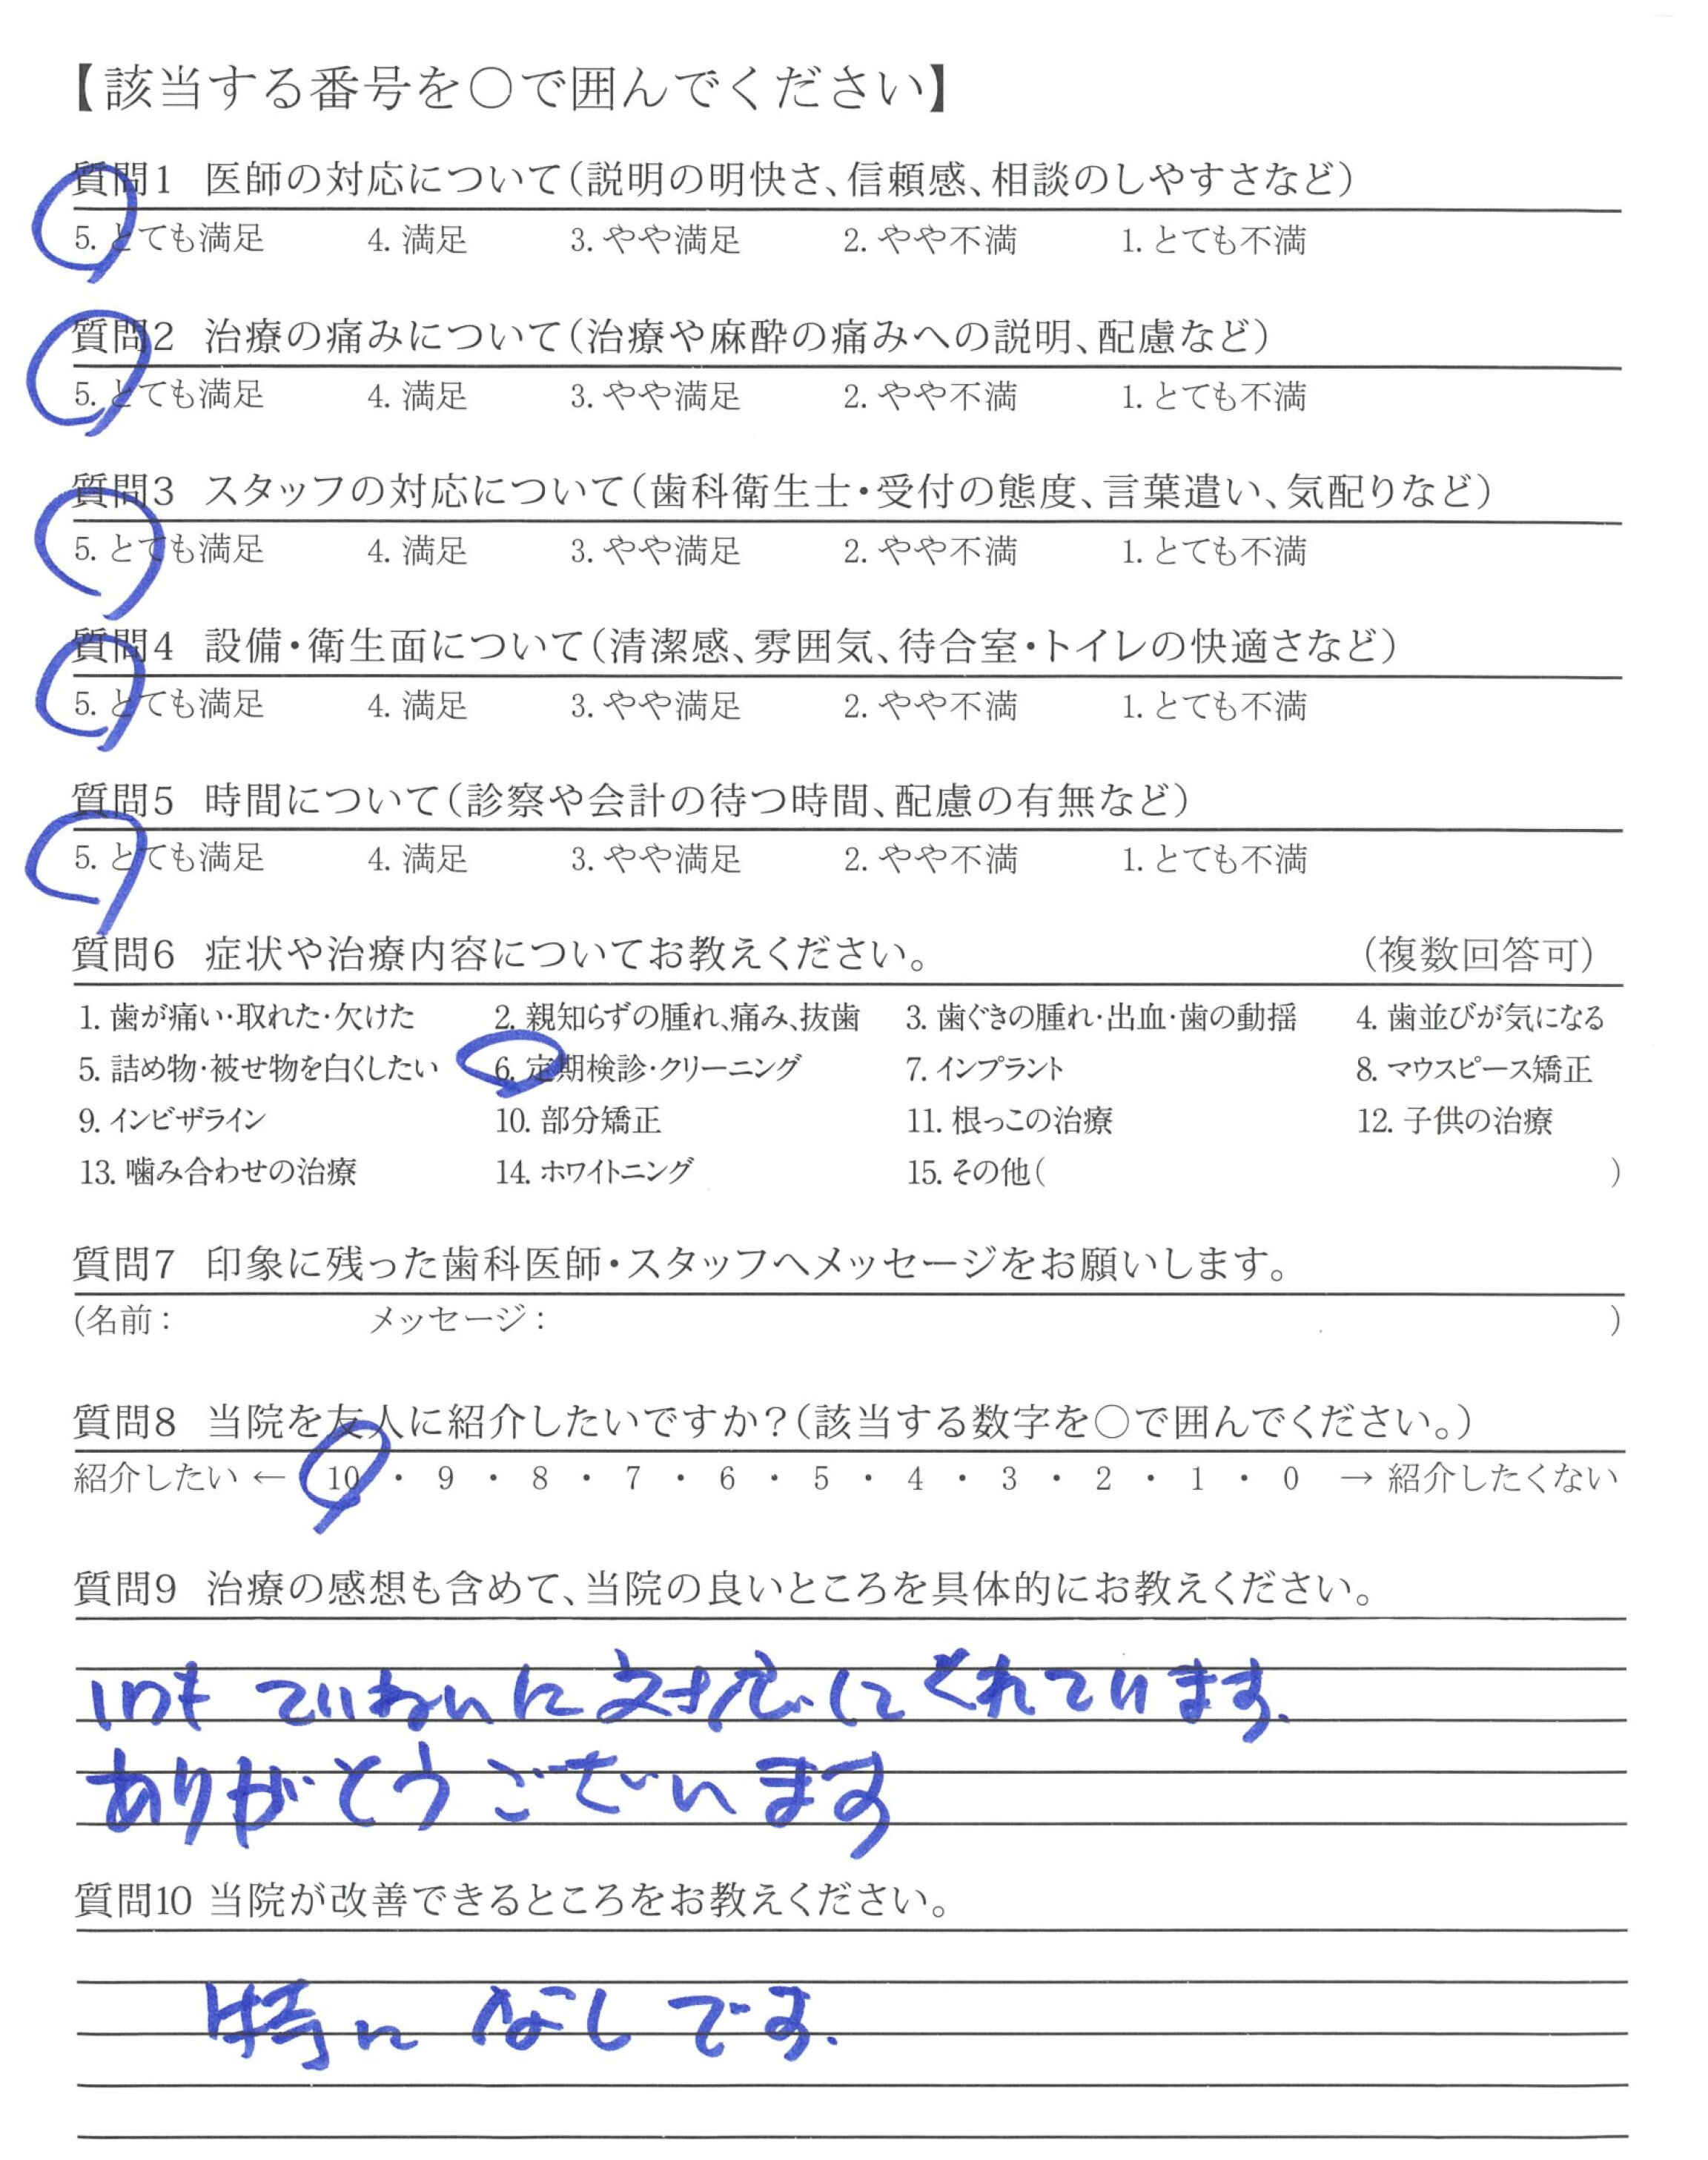 【該当する番号を○で囲んでください】
質問1 医師の対応について(説明の明快さ、信頼感、相談のしやすさなど)
5. とても満足 4. 満足 3. やや満足 2. やや不満 1. とても不満
質問2 治療の痛みについて(治療や麻酔の痛みへの説明、配慮など)
5. とても満足 4. 満足 3. やや満足 2. やや不満 1. とても不満
質問3 スタッフの対応について(歯科衛生士・受付の態度、言葉遣い、気配りなど)
5. とても満足 4. 満足 3. やや満足 2. やや不満 1. とても不満
質問4 設備・衛生面について(清潔感、雰囲気、待合室・トイレの快適さなど)
5. とても満足 4. 満足 3. やや満足 2. やや不満 1. とても不満
質問5 時間について(診察や会計の待つ時間、配慮の有無など)
5. とても満足 4. 満足 3. やや満足 2. やや不満 1. とても不満
質問6 症状や治療内容についてお教えください。 (複数回答可)
1. 歯が痛い・取れた・欠けた 2. 親知らずの腫れ、痛み、抜歯 3. 歯ぐきの腫れ・出血・歯の動揺 4. 歯並びが気になる
5. 詰め物・被せ物を白くしたい 6. 定期検診・クリーニング 7. インプラント 8. マウスピース矯正
9. インビザライン 10. 部分矯正 11. 根っこの治療 12. 子供の治療
13. 噛み合わせの治療 14. ホワイトニング 15. その他( )
質問7 印象に残った歯科医師・スタッフへメッセージをお願いします。
(名前: メッセージ: )
質問8 当院を友人に紹介したいですか?(該当する数字を○で囲んでください。)
紹介したい ← 10 ・ 9 ・ 8 ・ 7 ・ 6 ・ 5 ・ 4 ・ 3 ・ 2 ・ 1 ・ 0 → 紹介したくない
質問9 治療の感想も含めて、当院の良いところを具体的にお教えください。
いつも ていねいに 対応して くれています.
ありがとうございます
質問10 当院が改善できるところをお教えください。
特に なしです.